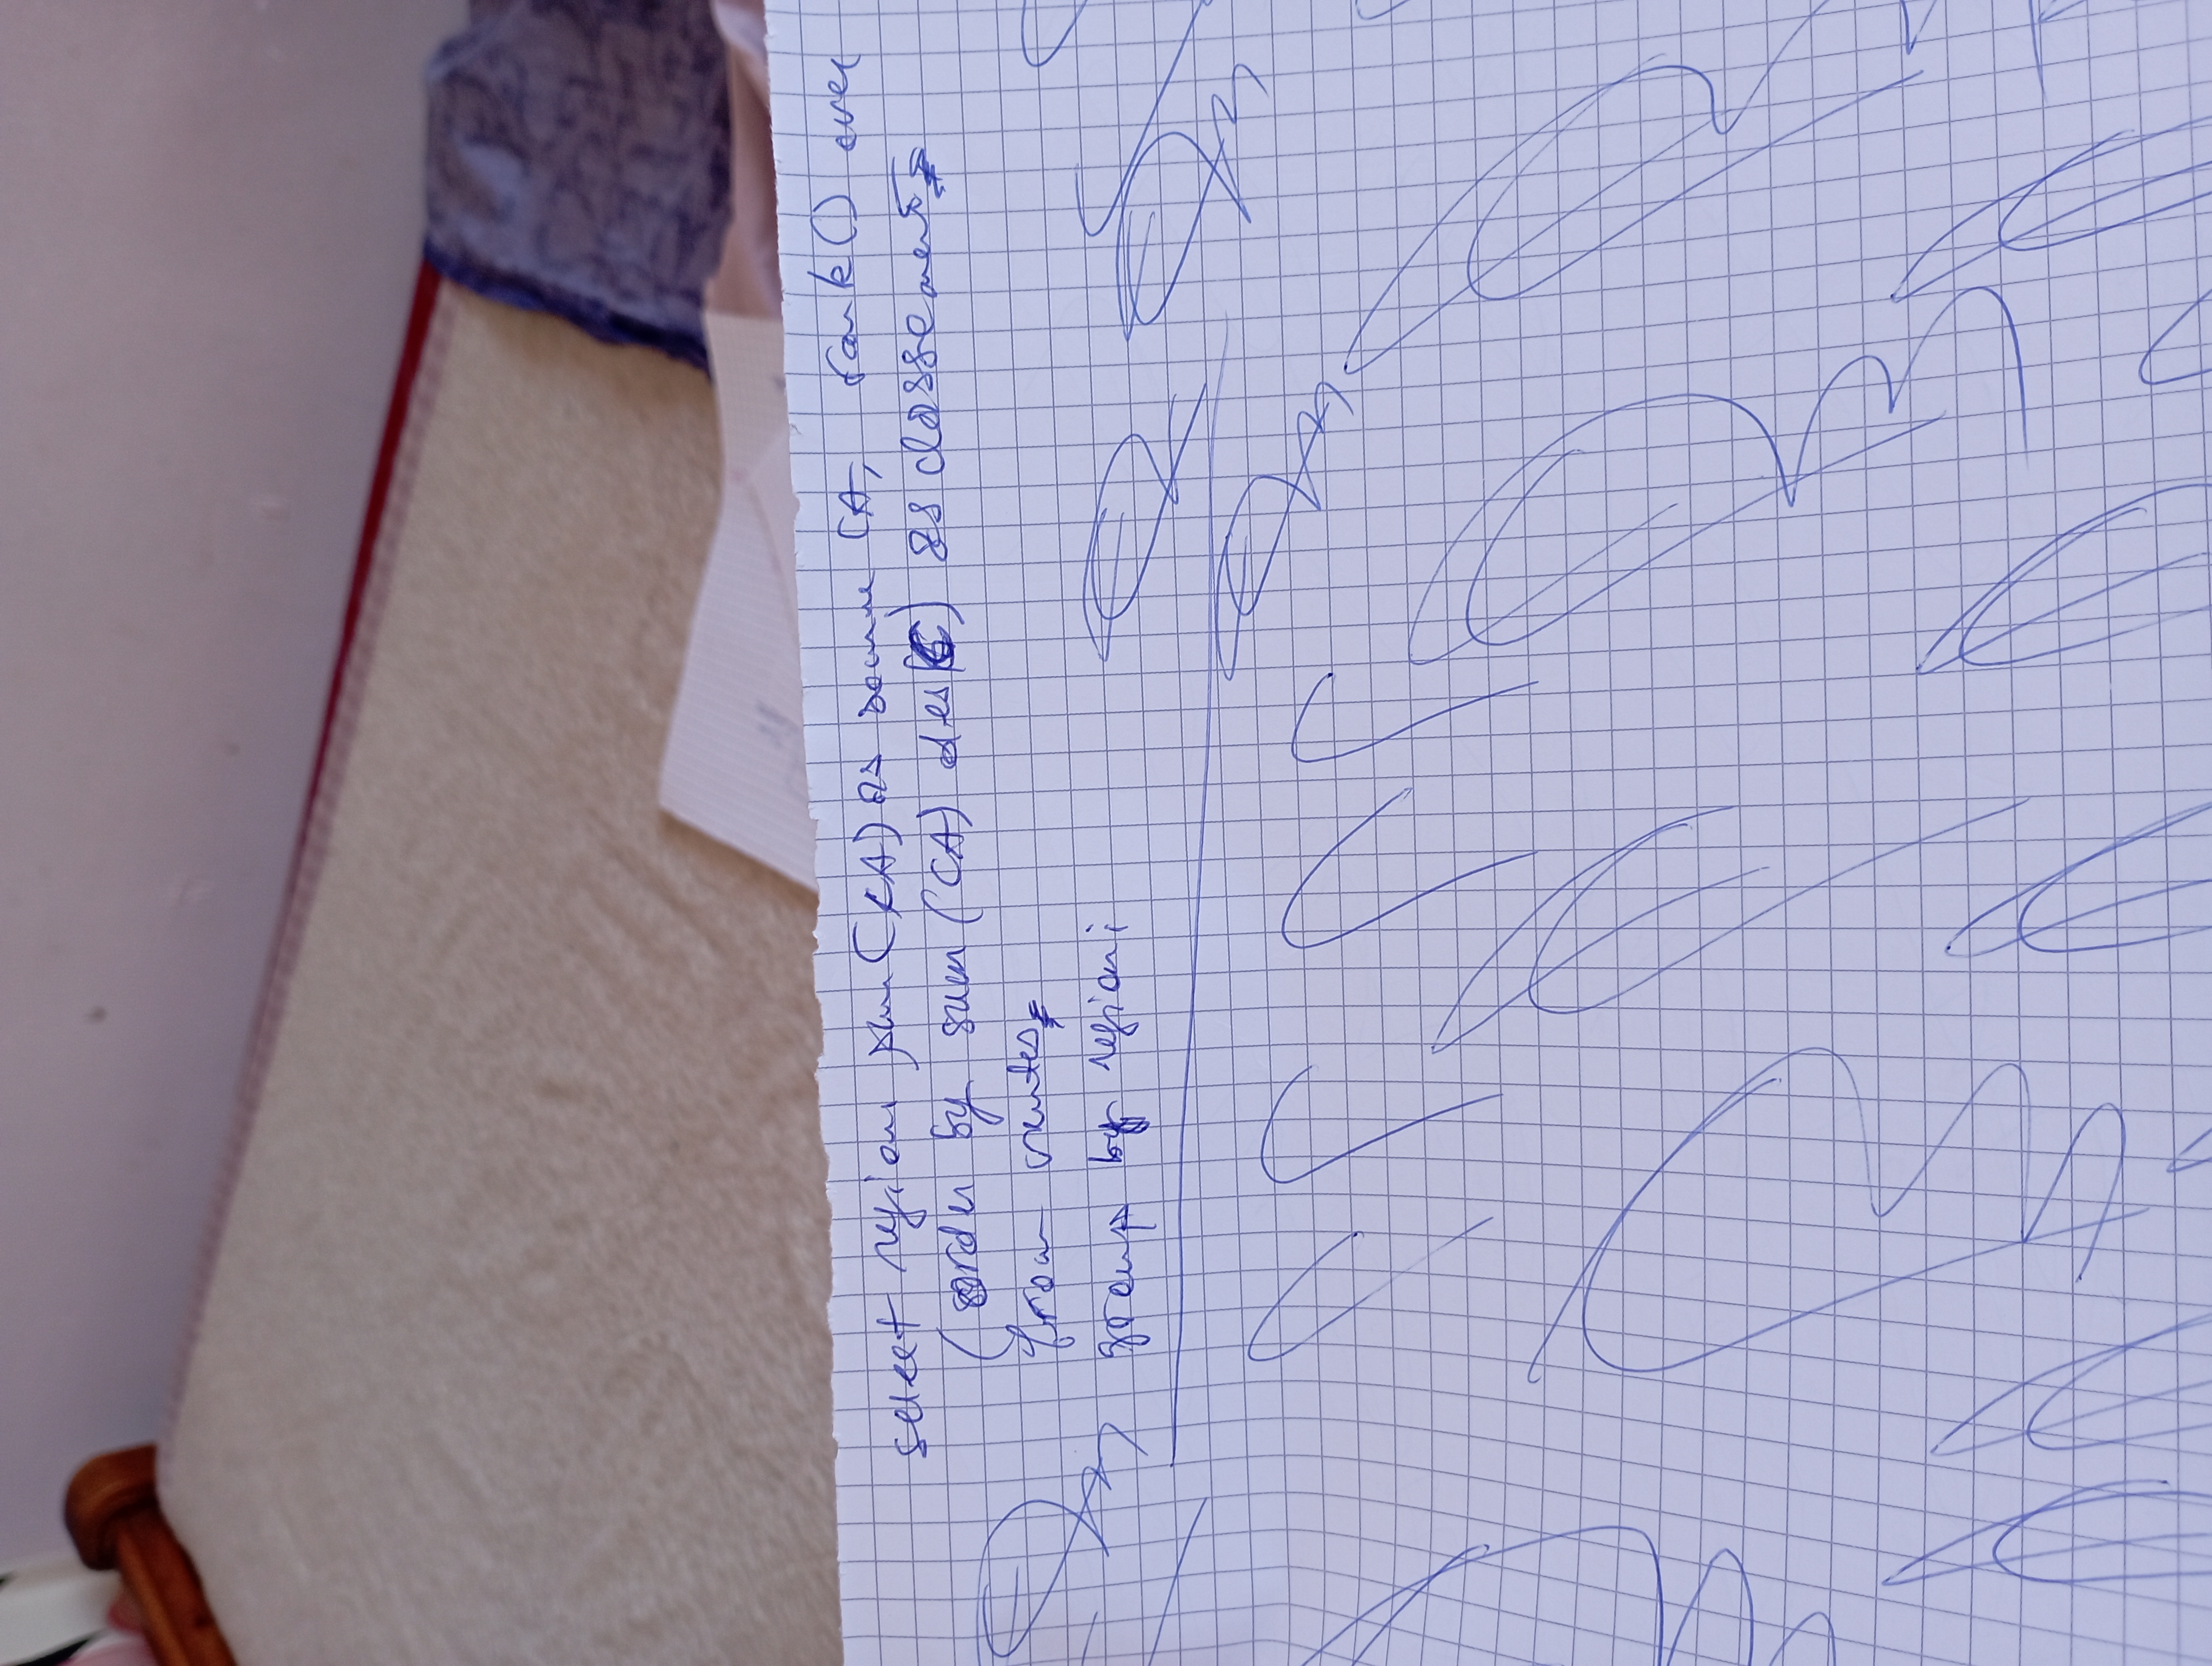 select region sum(CA) as somme CA, rank() over
(order by sum(CA) desc) as classement
from ventes
group by region;